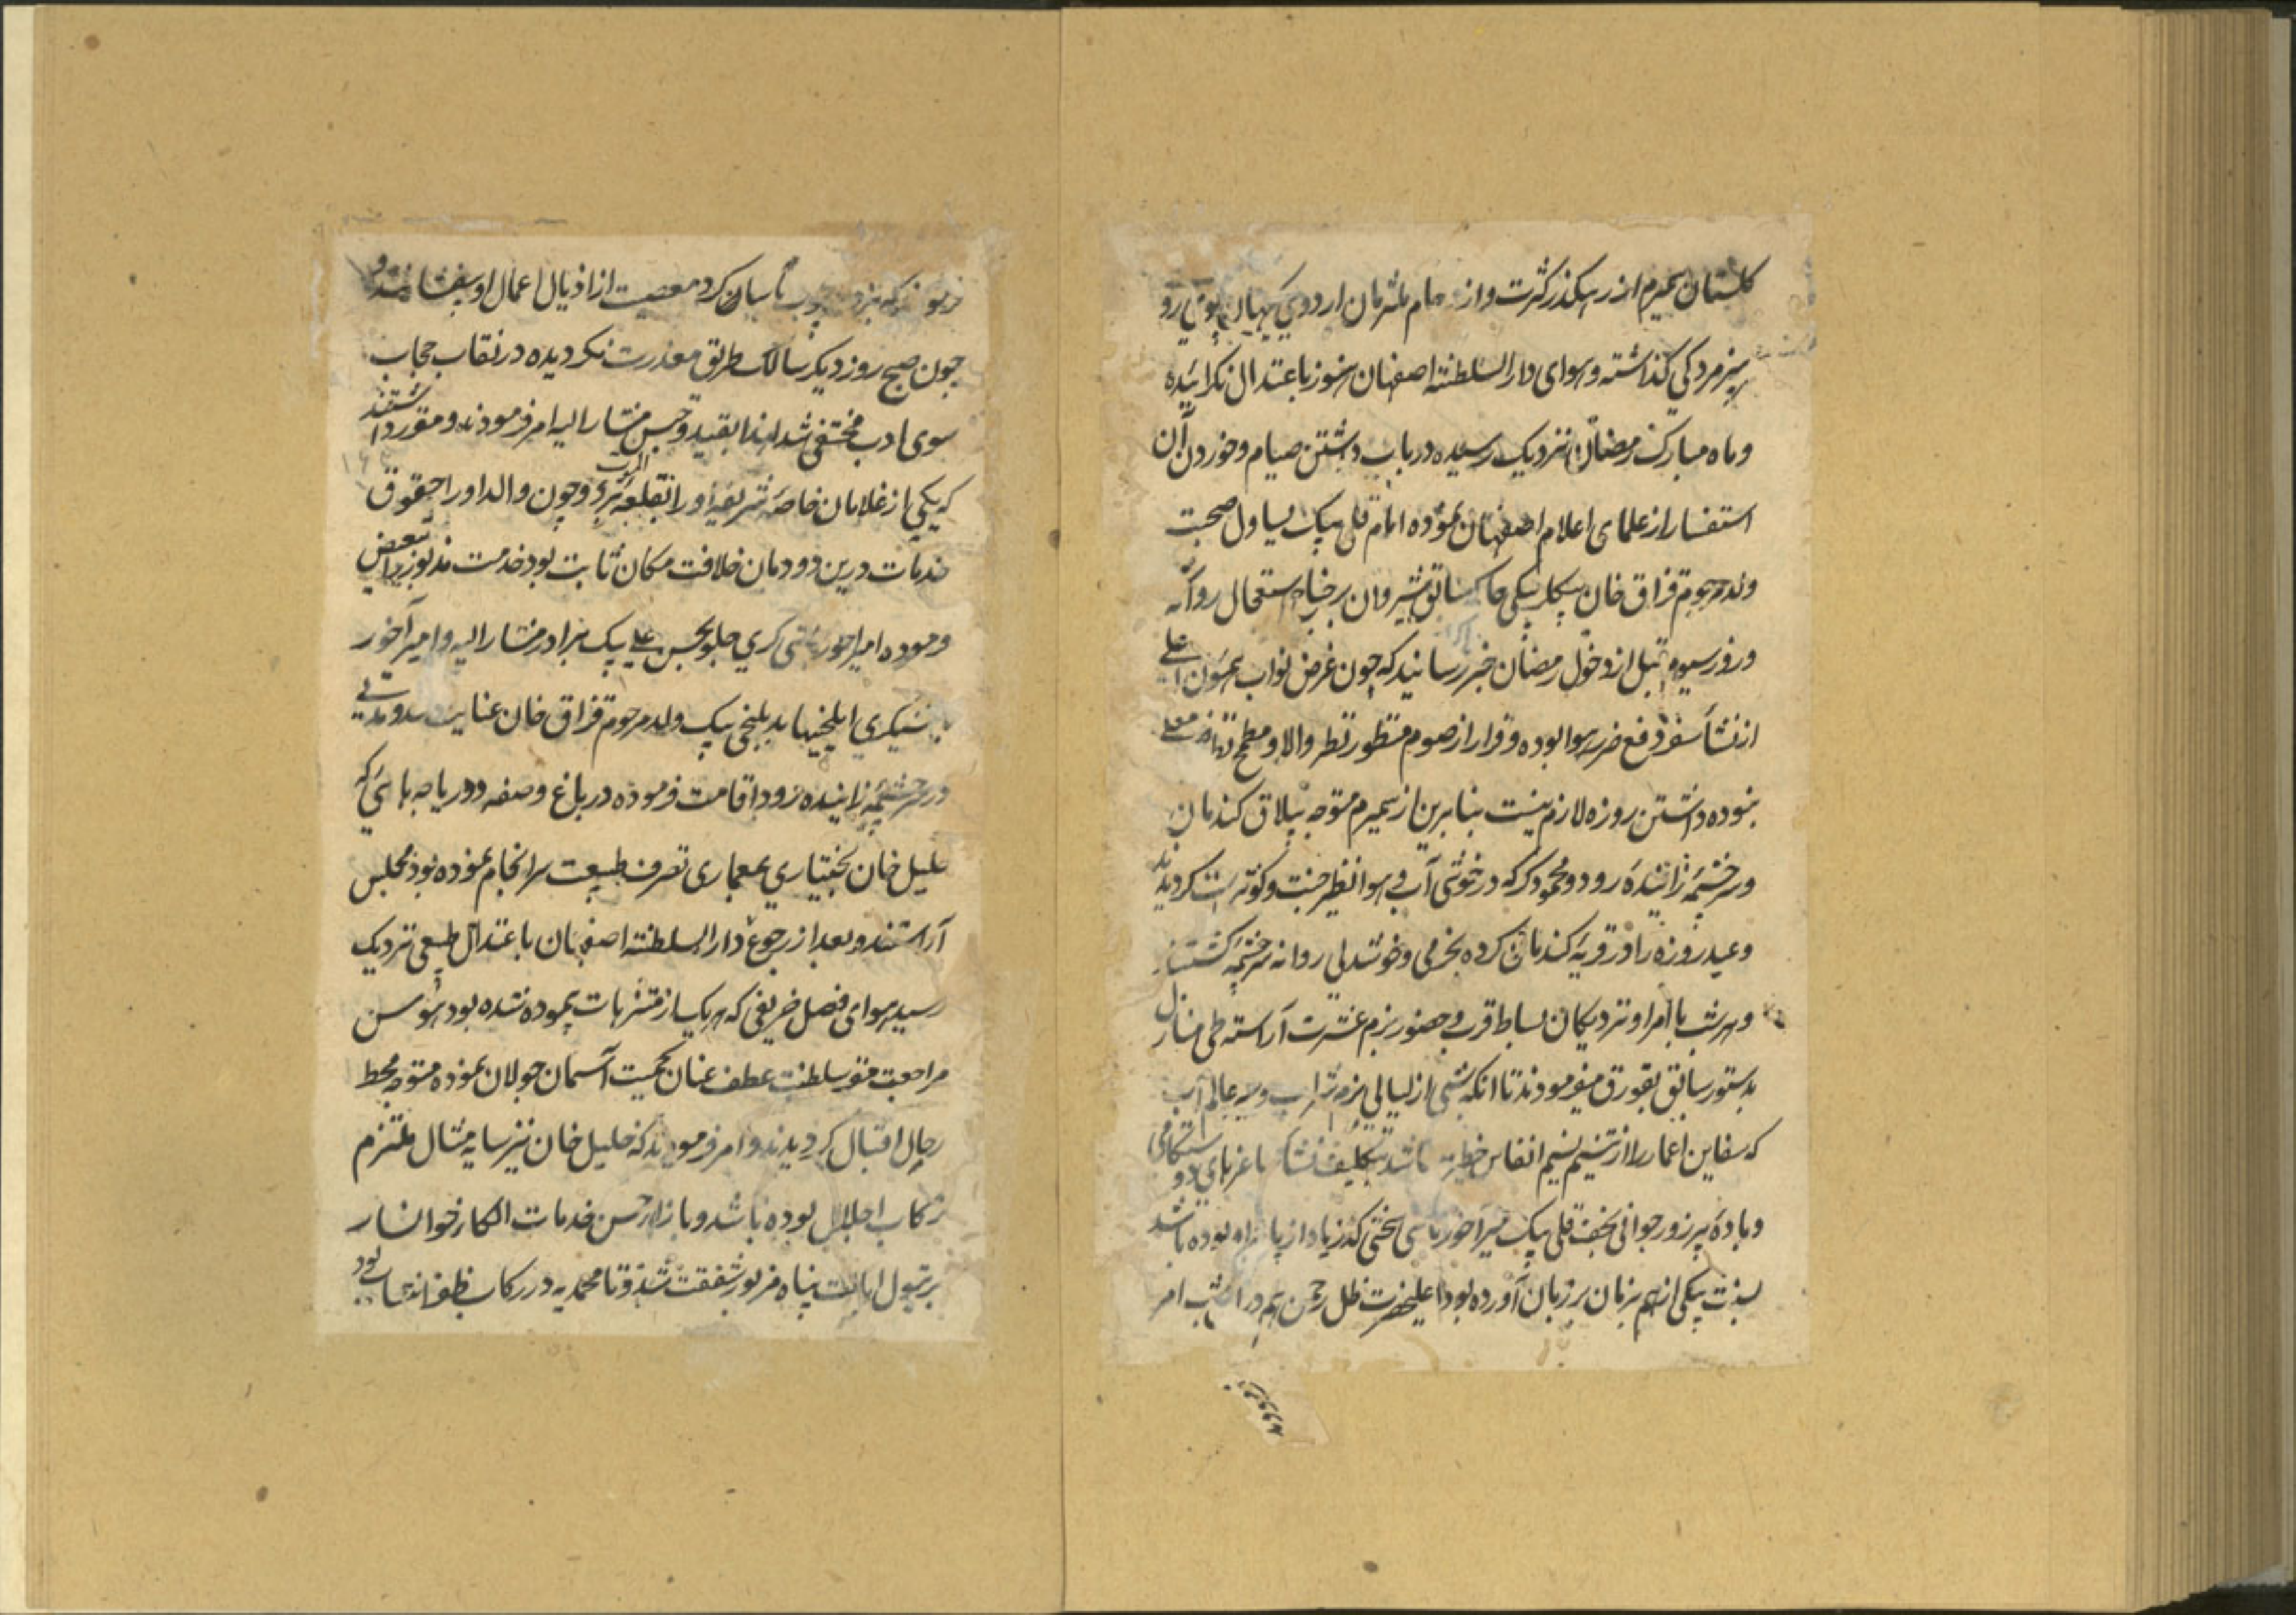 کلستان سمیرم از رهکذر کثرت و از ملتزمان اردوی کیهان پوی رو
بپژمردکی کذاشته و هوای دار السلطنه اصفهان هنوز باعتدال نکرائیده
و ماه مبارک رمضان نزدیک رسیده در باب داشتن صیام و خوردن آن
استفسار از علمای اعلام اصفهان نموده امام قلی بیک یساول صحبت
ولد مرحوم قزاق خان بیکلربیکی سابق شیروان بر جناح استعجال روانه
و روز سیوم قبل از دخول رمضان خبر رسانید که چون غرض نواب همیون اعلی
از نشأ سفر دفع ضرر هوا بوده و فرار از صوم منظور نظر والا و مطمح
نبوده داشتن روزه لازم نیست بنا برین از سمیرم متوجه ییلاق کندمان
و سرچشمه زاینده رود و محمود کر که در خوشی آب و هوا نظیر جنت و کوثر است کردیدند
و عید روزه را در قریه کندمان کرده بخرمی و خوشدلی روانه سرچشمه کشتند
و هر شب با امرا و نزدیکان بساط قرب و حضور بزم عشرت آراسته طی منازل
بدستور سابق بقورق میفرمودند تا انکه شبی از لیالی بزم شراب و سیر عالم آب
که سفاین اعمار را از تنسیم نسیم انفاس باشد بتکلیف نشأ ساغرهای دوستکامی
و باده پر زور جوانی نجف قلی بیک میرآخور باشی سخنی که زیاد از پایه او بوده باشد
بسنت یکی از هم بزمان بر زبان آورده بود اعلیحضرت ظل رحمن هم در انشب امر
فرمودند که چوب تأسیان کرد معصیت از اذیال اعمال او بیفشانند و
چون صبح روز دیکر سالک طریق معذرت نکردیده در نقاب حجاب
سوی ادب مختفی شد لهذا بقید و حبس مشار الیه امر فرمودند و مقرر داشتند
که یکی از غلامان خاصه شریفه او را بقلعه الموت برد و چون والد او را حقوق
خدمات درین دودمان خلافت مکان ثابت بود خدمت مذبور تفویض
فرموده امیراخور باشی کری جلو بحسن علی بیک برادر مشار الیه و امیر آخور
باشیکری ایلخیها به بلخی بیک ولد مرحوم قزاق خان عنایت شد و مدتی
در سرچشمه زاینده رود اقامت فرموده در باغ و صفه و دریاچه هائی که
خلیل خان بختیاری بمعماری تصرف طبیعت سرانجام نموده بود مجلس
آراستند و بعد از رجوع دار السلطنه اصفهان باعتدال طبیعی نزدیک
رسید هوای فصل خریفی که هر یک از متنزهات پیموده شده بود هوس
مراجعت مقر سلطنت عطف عنان کمیت آسمان جولان نموده متوجه محط
رحال اقبال کردیدند و امر فرمودند که خلیل خان نیز سایه مثال ملتزم
رکاب اجلال بوده باشد و بازاء حسن خدمات الکاء خوانسار
بر تیول ایالت پناه مزبور شفقت شد و تا محمدیه در رکاب ظفر انتساب بود
فرمودند